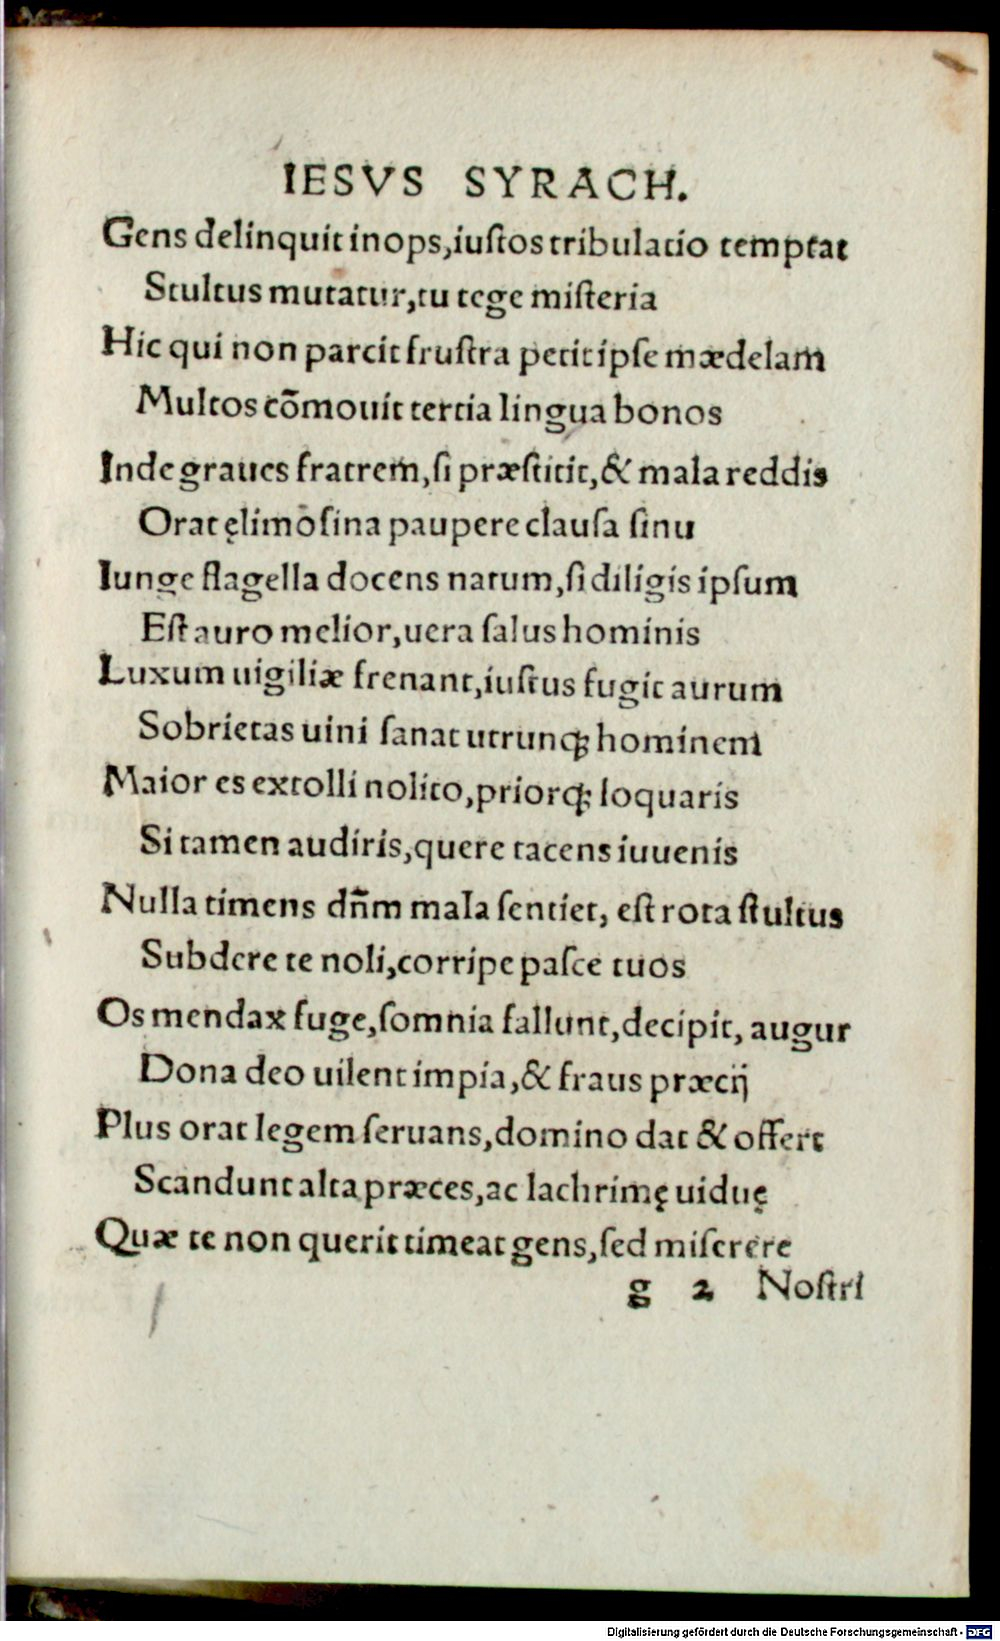 IESVS SYRACH.
Gens delinquit inops,iuſtos tribulatio temptat
Stultus mutatur,tu tege miſteria
Hic qui non parcit fruſtra petit ipſe mædelam
Multos cõmouit tertia lingua bonos
Inde graues fratrem,ſi præſtitit,& mala reddis
Orat ęlimoſina paupere clauſa ſinu
Iunge flagella docens natum,ſi diligis ipſum
Eſt auro melior,uera ſalus hominis
Luxum uigiliæ frenant,iuſtus fugit aurum
Sobrietas uini ſanat utrunq; hominem
Maior es extolli nolito,priorq; loquaris
Si tamen audiris,quere tacens iuuenis
Nulla timens dñm mala ſentiet, eſt rota ſtultus
Subdere te noli,corripe paſce tuos
Os mendax fuge,ſomnia fallunt,decipit, augur
Dona deo uilent impia,& fraus præcij
Plus orat legem ſeruans,domino dat & offert
Scandunt alta præces,ac lachrimę uiduę
Quæ te non querit timeat gens,ſed miſerere
g 2 Noſtri
Digitalisierung gefördert durch die Deutsche Forschungsgemeinschaft - DFG